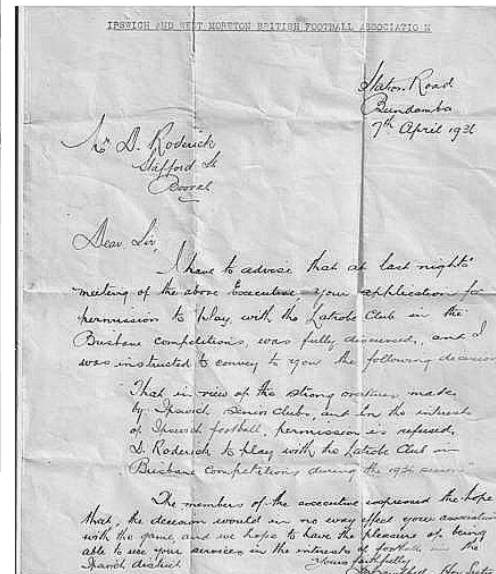 IPSWICH AND WEST MORETON BRITISH FOOTBALL ASSOCIATION
Station Road
Bundamba
7th April 1936
Mr D. Roderick
Stafford St
Booval
Dear Sir,
I have to advise that at last nights
meeting of the above Executive, your application for
permission to play with the Latrobe Club in the
Brisbane competitions, was fully discussed, and I
was instructed to convey to you the following decision
"That in view of the strong made
by Ipswich Senior clubs, and in the interests
of Ipswich football, permission is refused
D. Roderick to play with the Latrobe Club in
Brisbane Competitions during the 1936 season"
The members of the executive expressed the hope
that, the decision would in no way effect your association
with the game, and we hope to have the pleasure of being
able to use your services in the interests of football in the
Ipswich district
Yours faithfully
Hon Sectry